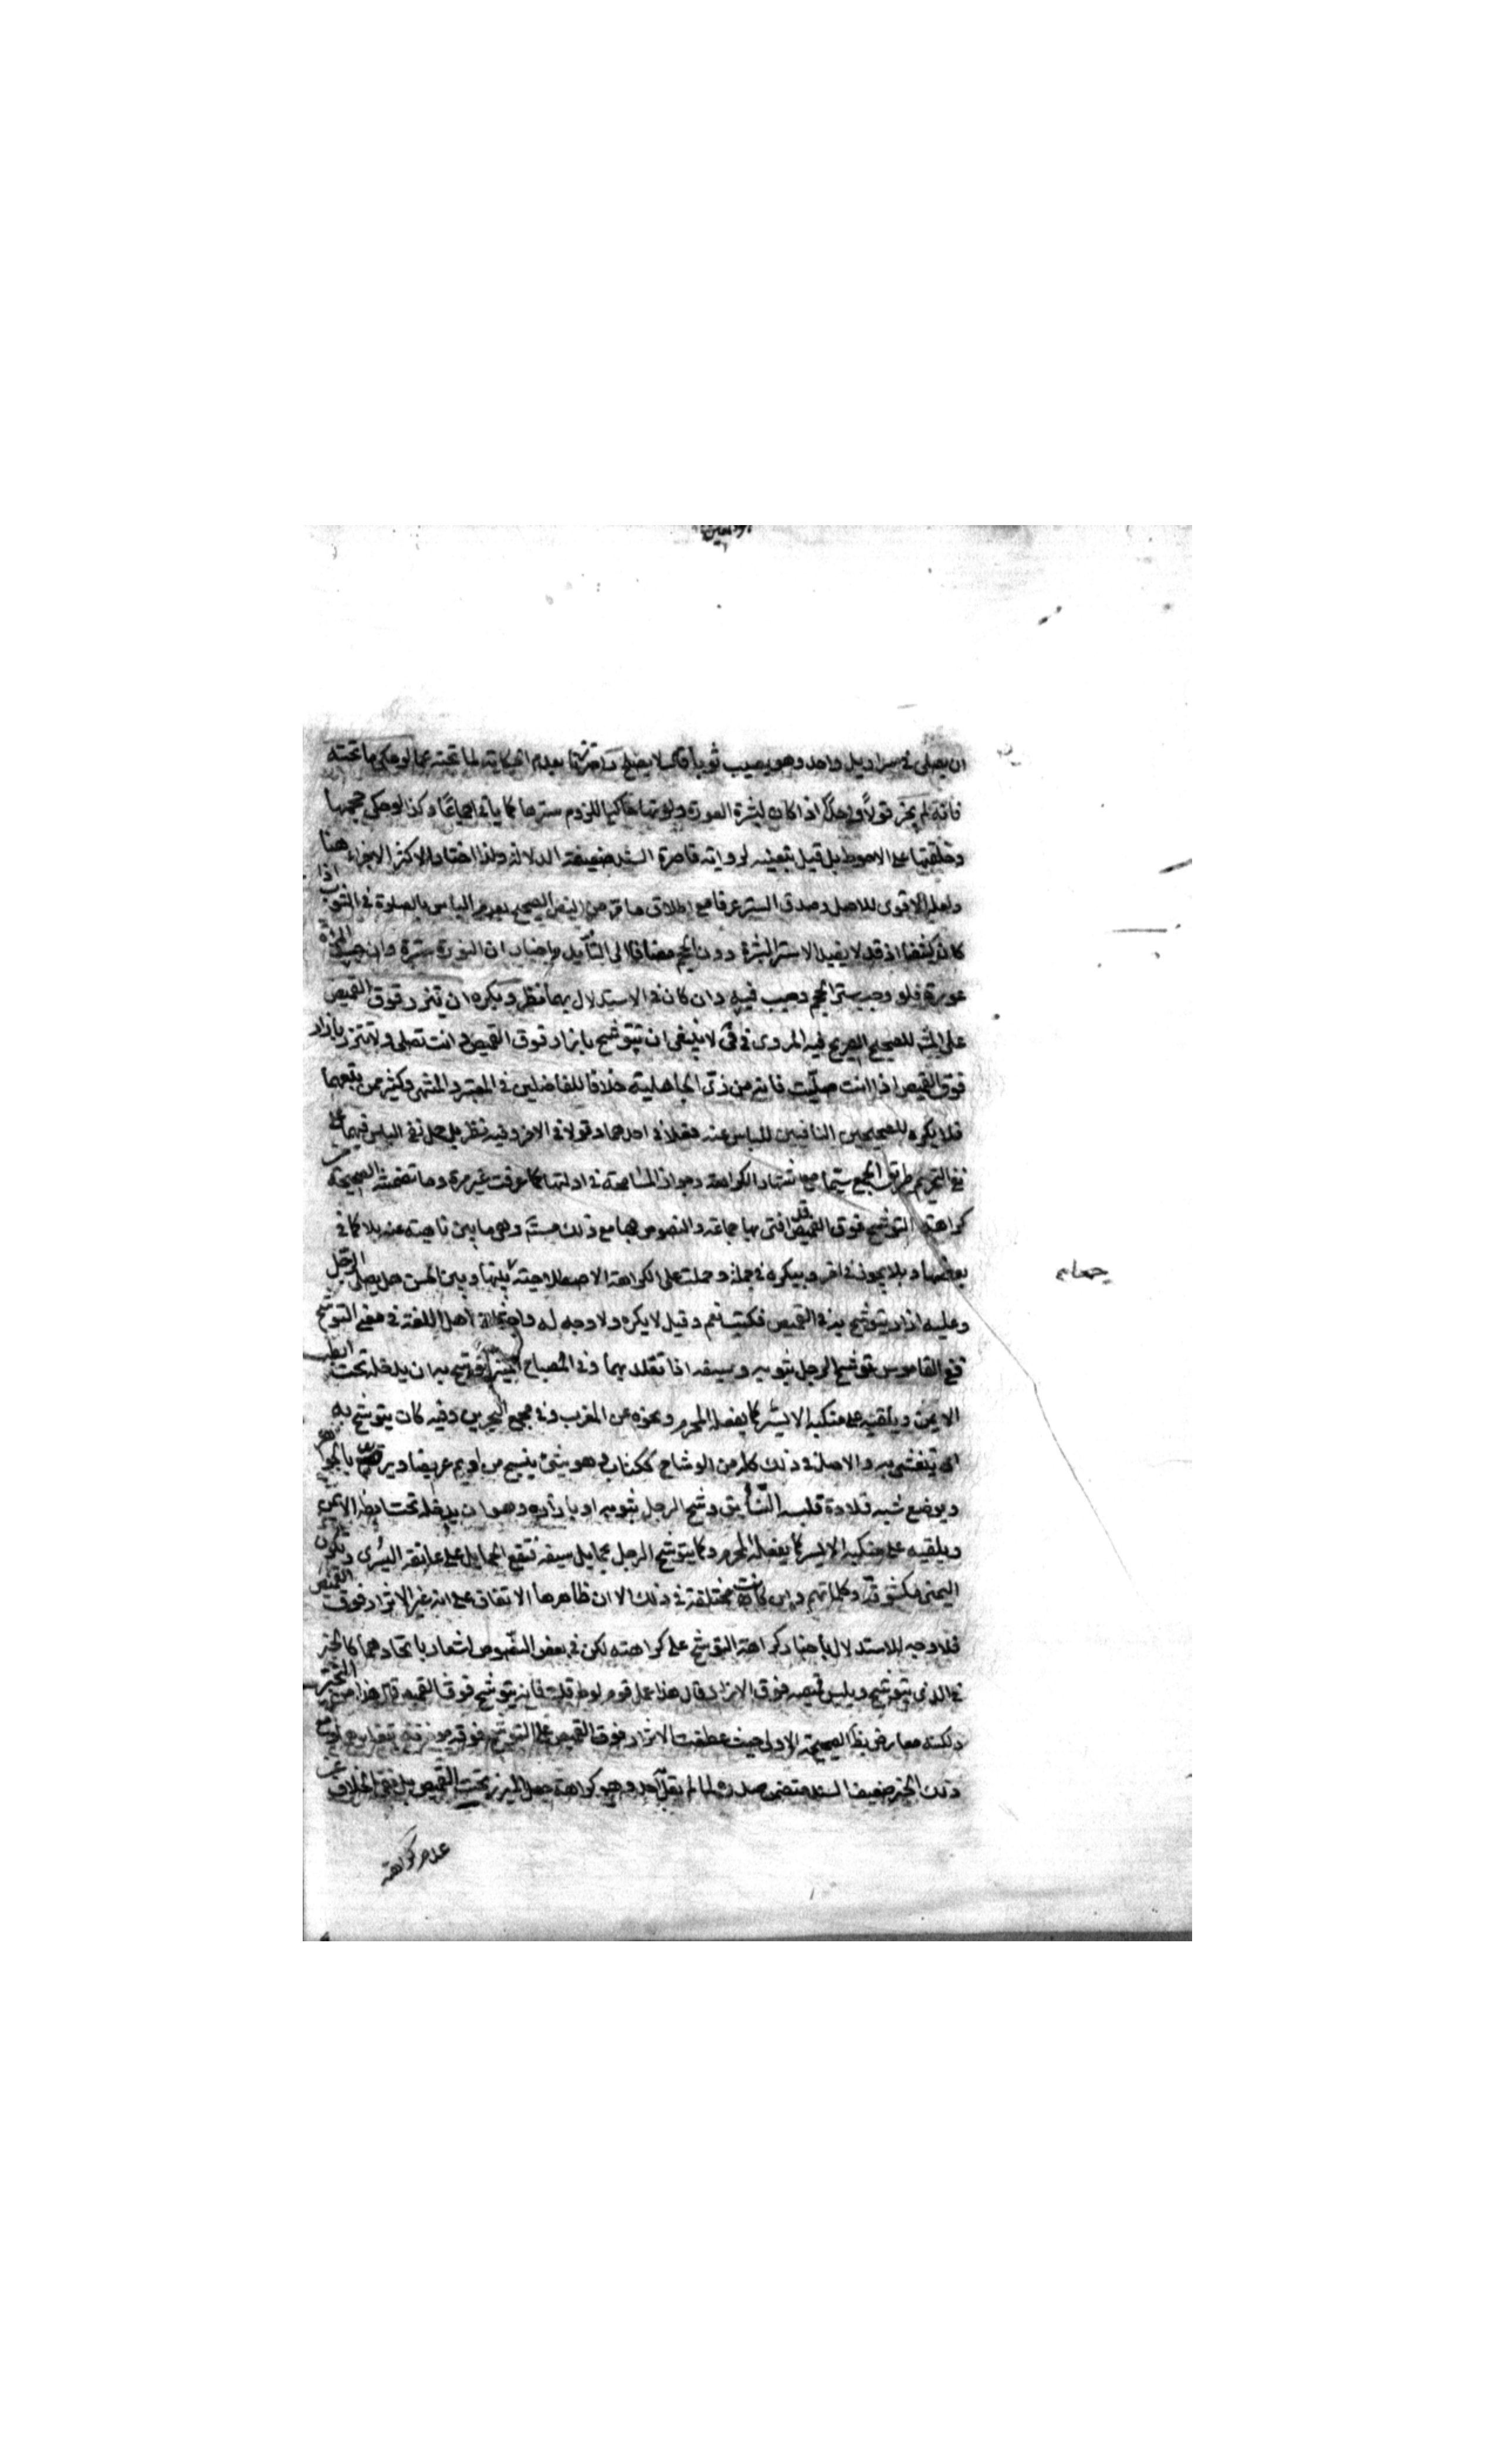 ان يصلى فى سراويل واحد وهو يصيب ثوبا قال لا يصلح واحترزنا بعدم الحكاية لما تحته عما لو حكى ما تحته
فانه لم يجز قولا واحدا اذا كان لبشرة العورة ولونها حاكيا للزوم سترها كما ياتى اجماعا وكذا لو حكى حجمها
وخلقتها على الاحوط بل قيل بتعينه لرواية قاصرة السند ضعيفة الدلالة ولذا اختار الاكثر الاجزاء هنا
ولعله الاقوى للاصل وصدق الستر عرفا مع اطلاق ما مر من النص الصحيح بعدم الباس بالصلوة فى الثوب اذا
كان كثيفا اذ قد لا يفيد الا ستر البشرة دون الحجم مضافا الى التأيل باخبار ان النورة سترة وان جسد المرأة
عورة فلو وجب ستر الحجم وجب فيه وان كان فى الاستدلال بهما نظر ويكره ان يتزر فوق القميص
على المش للصحيح الصريح فيه المروى فى فى لا ينبغى ان تتوشح بازار فوق القميص وانت تصلى ولا تتزر بازار
فوق القميص اذا انت صليت فانه من زى الجاهلية خلافا للفاضلين فى المعتبر والمنتهى وكثير ممن تبعهما
فلا يكره للصحيحين النافيين للباس عنه فعلا فى احدهما وقولا فى الاخر وفيه نظر بل حمل نفى الباس فيهما على
نفى التحريم طريق الجمع سيما مع اشتهار الكراهة وجواز المسامحة فى ادلتها كما عرفت غير مرة وما تضمنته الصحيحة من
كراهة التوشح فوق القميص قد افتى بها جماعة والنصوص بها مع ذلك مستفيضة وهى ما بين ناهية عنه بلا كما فى
بعضها وبلا يجوز فى اخر وبيكره فى جملة وحملت على الكراهة الاصطلاحية للجمع بينها وبين الحسن هل يصلى الرجل
وعليه ازار يتوشح به فوق القميص فكتب نعم وقيل لا يكره ولا وجه له واختلف اهل اللغة فى معنى التوشح
ففى القاموس توشح الرجل بثوبه وسيفه اذا تقلد بهما وفى المصباح المنير توشح به ان يدخله تحت ابطه
الايمن ويلقيه على منكبه الايسر كما يفعله المحرم ونحوه عن المغرب وفى مجمع البحرين وفيه كان يتوشح به
اى يتغشى به والاصل فى ذلك كله من الوشاح ككتاب وهو شئ ينسج من اديم عريضا ويرصع بالجواهر
ويوضع شبه قلادة تلبسه النساء يق وشح الرجل بثوبه او بازاره وهو ان يدخله تحت ابطه الايمن
ويلقيه على منكبه الايسر كما يفعله المحرم وكما يتوشح الرجل بحمايل سيفه فتقع الحمايل على عاتقه اليسرى وتكون
اليمنى مكشوفة وكلماتهم وان كانت مختلفة فى ذلك الا ان ظاهرها الاتفاق على انه غير الاتزار فوق القميص
فلا وجه للاستدلال باخبار كراهة التوشح على كراهته لكن فى بعض النصوص اشعار باتحادهما كالخبر
فى الذى يتوشح ويلبس قميصه فوق الازار فقال هذا عمل قوم لوط قلت فانه يتوشح فوق القميص قال هذا من التجبر
ولكنه معارض بظ الصحيحة الاولى حيث عطفت الاتزار فوق القميص على التوشح فوقه موذنة بتغايرهما مع
ذلك الخبر ضعيف السند متضمن صدره لما لم يقل به احد وهو كراهة جعل الميزر تحت القميص بل نفى الخلاف عن
عدم كراهته